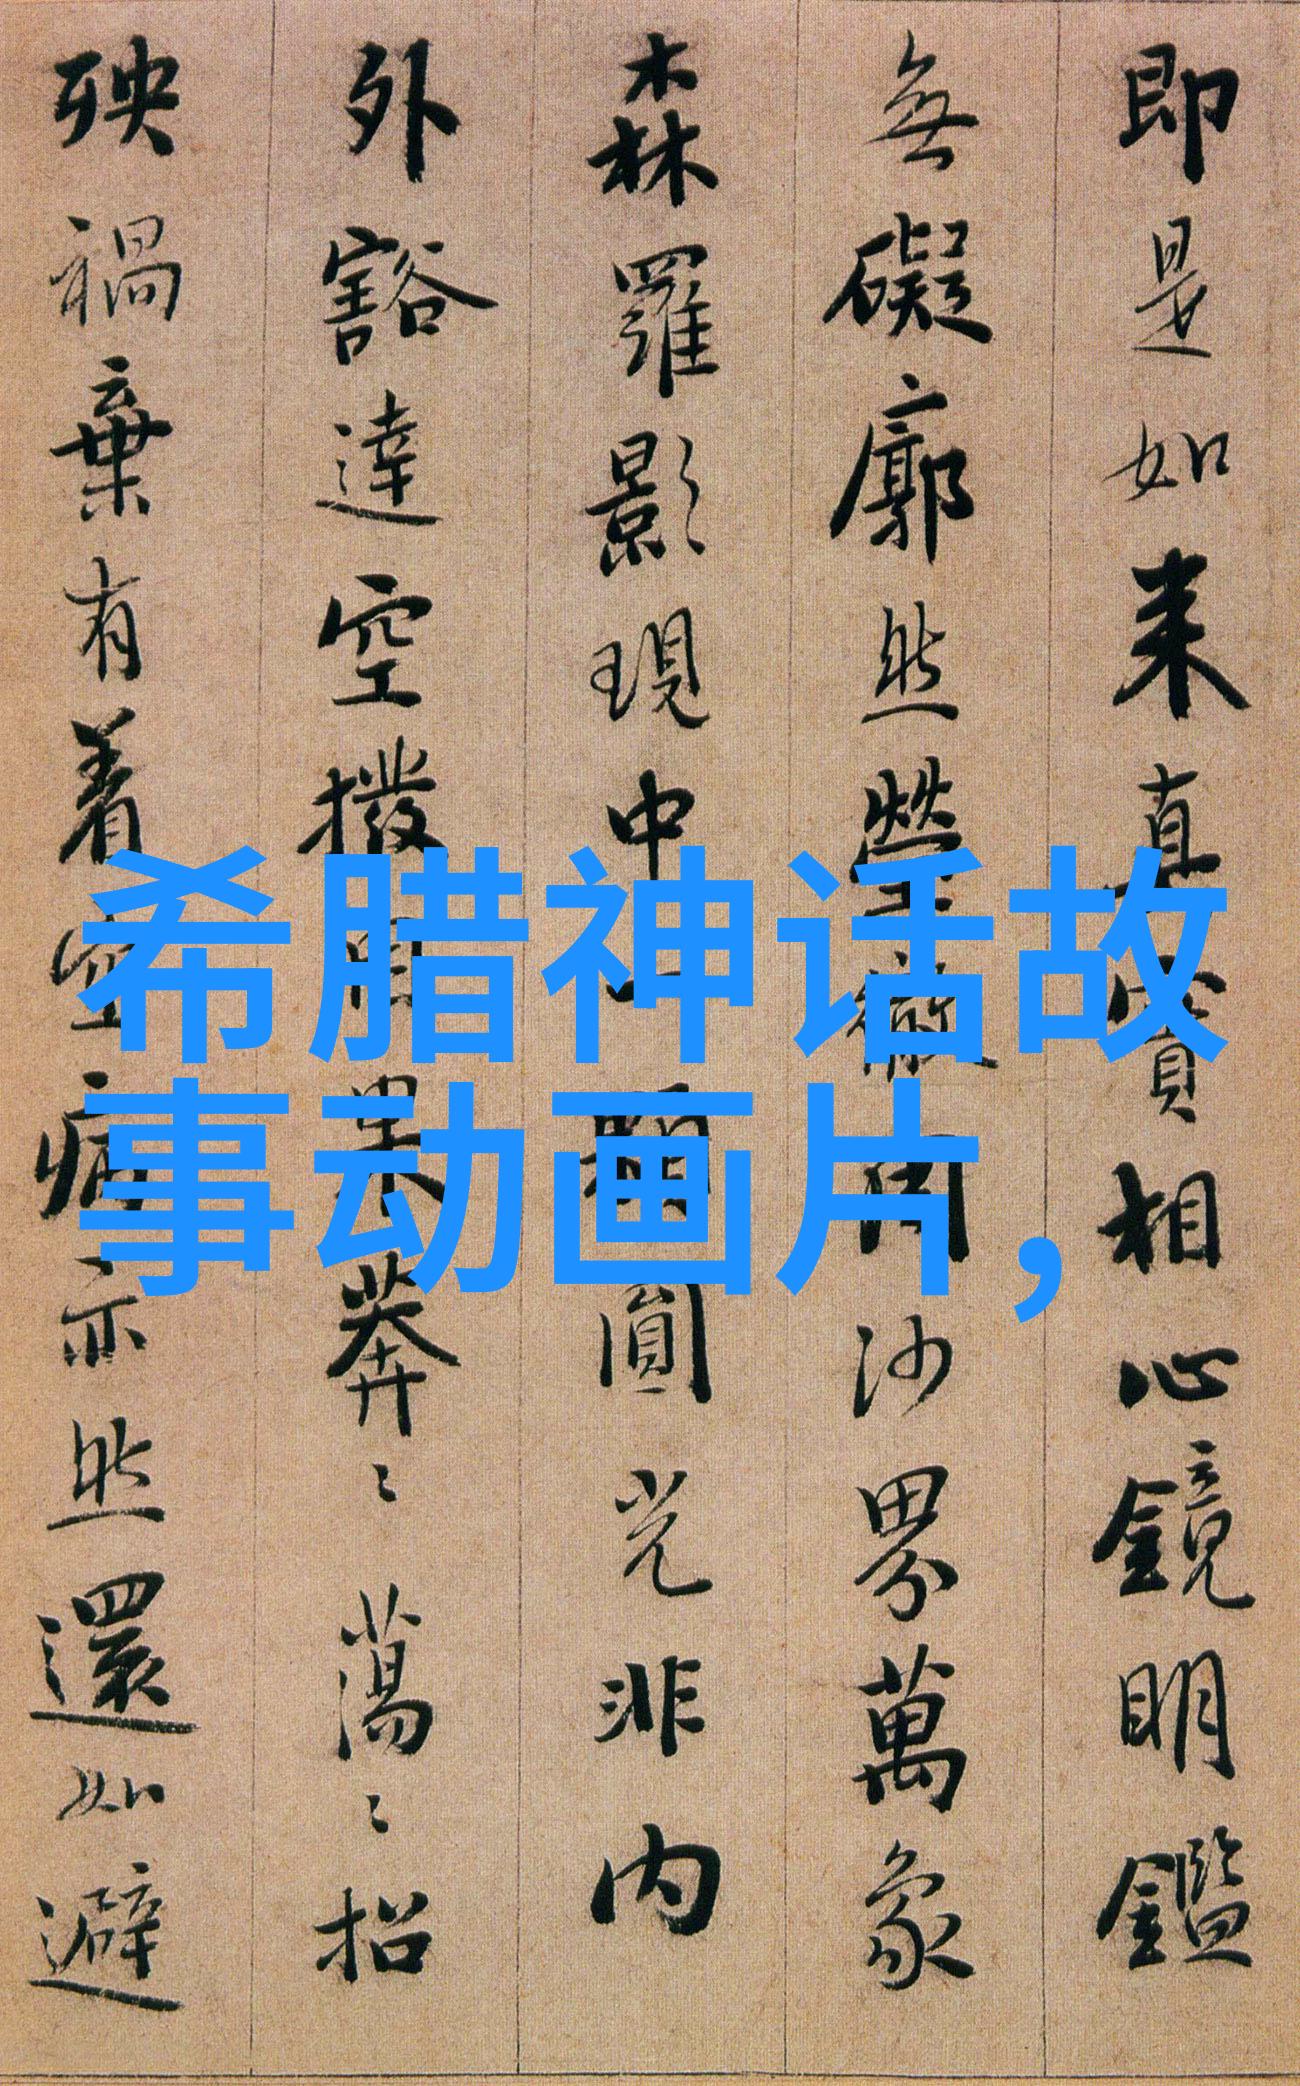 即是如来真實相心鏡明鑑
無礙廓然瑩徹周沙界萬象
森羅影現中一顆圓光非内
外豁達空撥因果莽〻蕩〻招
殃禍棄有着空病亦然還如避
希腊神话故
事动画片，